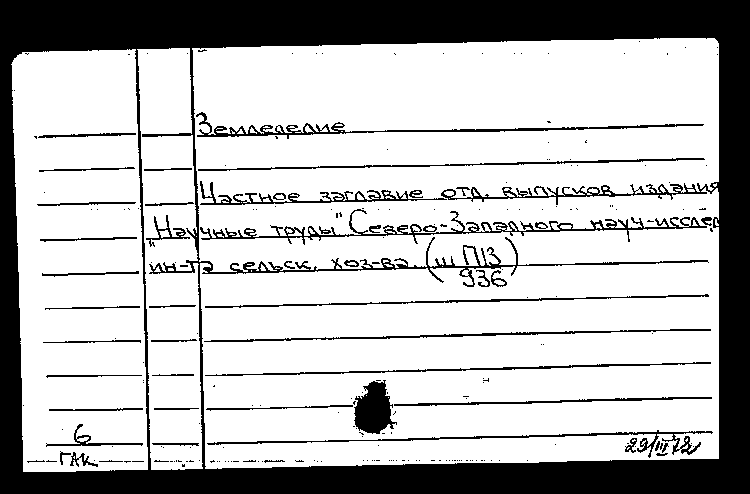 Земледелие
Частное заглавие отд. выпусков издания
"Научные труды" Северо-Западного науч-исслед
ин-та сельск. хоз-ва. (ш П13
936)
6
ГАК
29/III 72